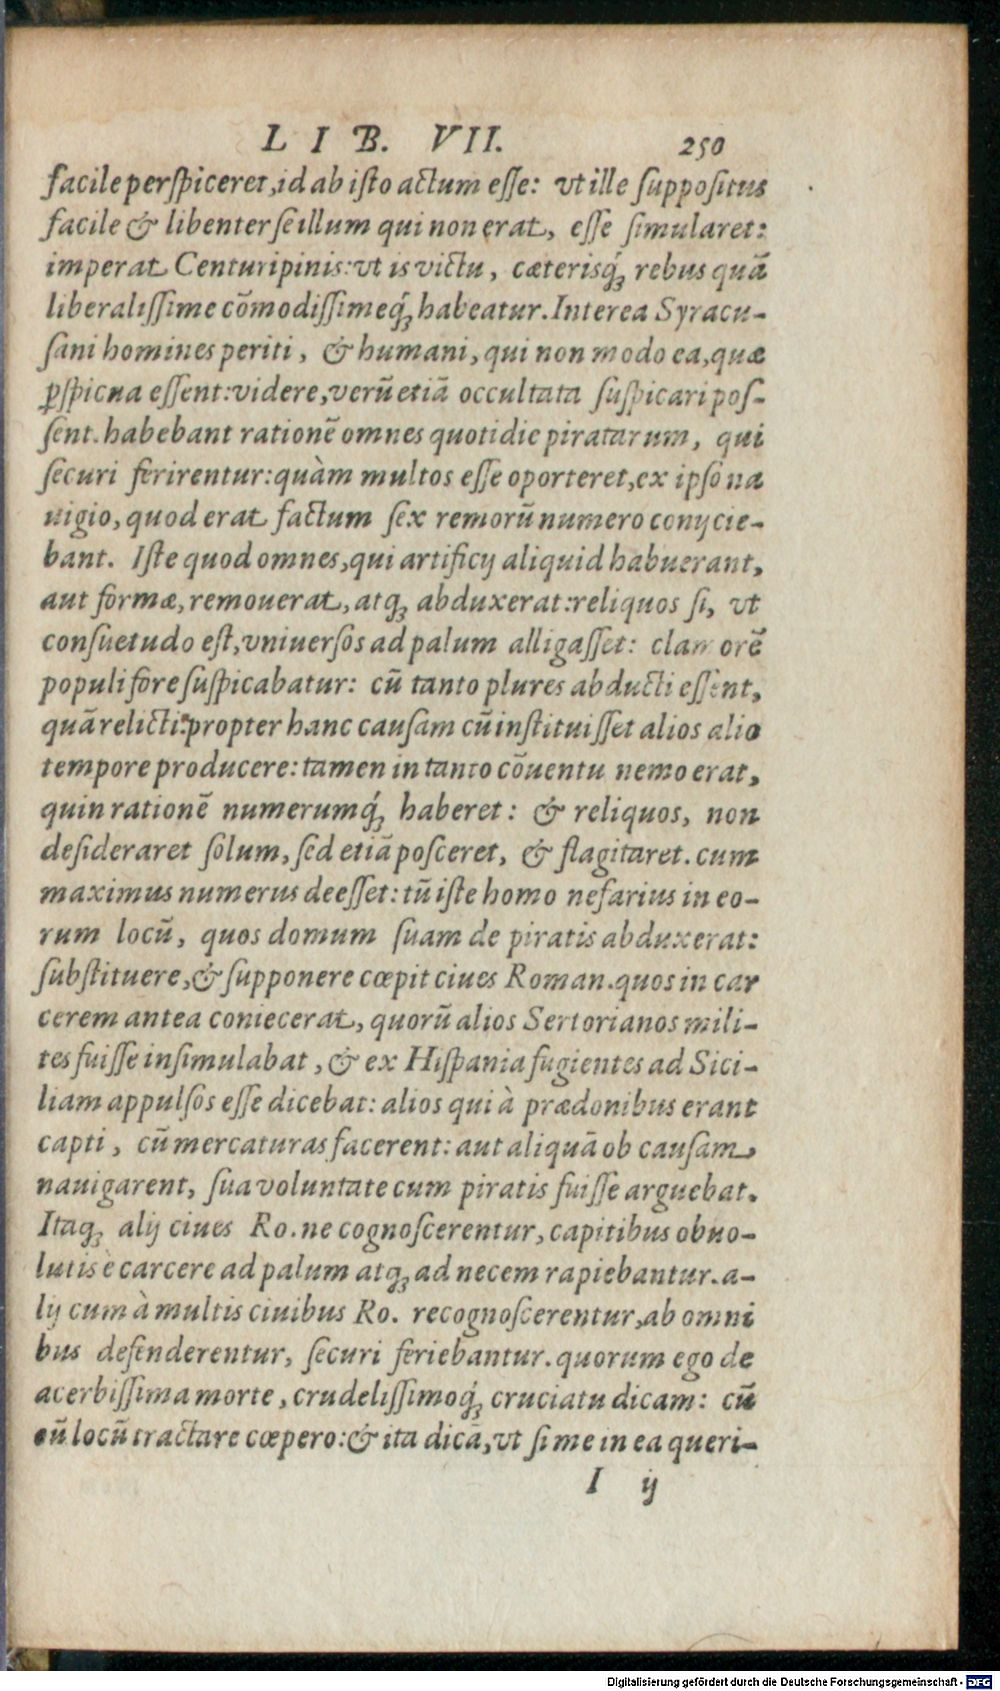 LIB. VII. 250
facile perſpiceret, id ab iſto actum eſſe: vt ille ſuppoſitus
facile & libenter ſe illum qui non erat, eſſe ſimularet:
imperat Centuripinis: vt is victu, cæterisq́; rebus quã
liberaliſſime cõmodiſſimeq́; habeatur. Interea Syracu-
ſani homines periti, & humani, qui non modo ea, quæ
ꝑſpicua eſſent: videre, verũ etiã occultata ſuſpicari poſ-
ſent. habebant rationẽ omnes quotidie piratarum, qui
ſecuri ferirentur: quàm multos eſſe oporteret, ex ipſo na
uigio, quod erat factum ſex remorũ numero conijcie-
bant. Iſte quod omnes, qui artificij aliquid habuerant,
aut formæ, remouerat, atq; abduxerat: reliquos ſi, vt
conſuetudo eſt, vniuerſos ad palum alligaſſet: clamorẽ
populi fore ſuſpicabatur: cũ tanto plures abducti eſſent,
quã relicti: propter hanc cauſam cũ inſtituiſſet alios alio
tempore producere: tamen in tanto cõuentu nemo erat,
quin rationẽ numerumq́; haberet: & reliquos, non
deſideraret ſolum, ſed etiã poſceret, & flagitaret. cum
maximus numerus deeſſet: tũ iſte homo nefarius in eo-
rum locũ, quos domum ſuam de piratis abduxerat:
ſubſtituere, & ſupponere cœpit ciues Roman. quos in car
cerem antea coniecerat, quorũ alios Sertorianos mili-
tes fuiſſe inſimulabat, & ex Hiſpania fugientes ad Sici-
liam appulſos eſſe dicebat: alios qui à prædonibus erant
capti, cũ mercaturas facerent: aut aliquã ob cauſam,
nauigarent, ſua voluntate cum piratis fuiſſe arguebat.
Itaq; alij ciues Ro. ne cognoſcerentur, capitibus obuo-
lutis è carcere ad palum atq; ad necem rapiebantur. a-
lij cum à multis ciuibus Ro. recognoſcerentur, ab omni
bus defenderentur, ſecuri feriebantur. quorum ego de
acerbiſſima morte, crudeliſſimoq́; cruciatu dicam: cũ
eũ locũ tractare cœpero: & ita dicã, vt ſi me in ea queri-
I ij
Digitalisierung gefördert durch die Deutsche Forschungsgemeinschaft - DFG